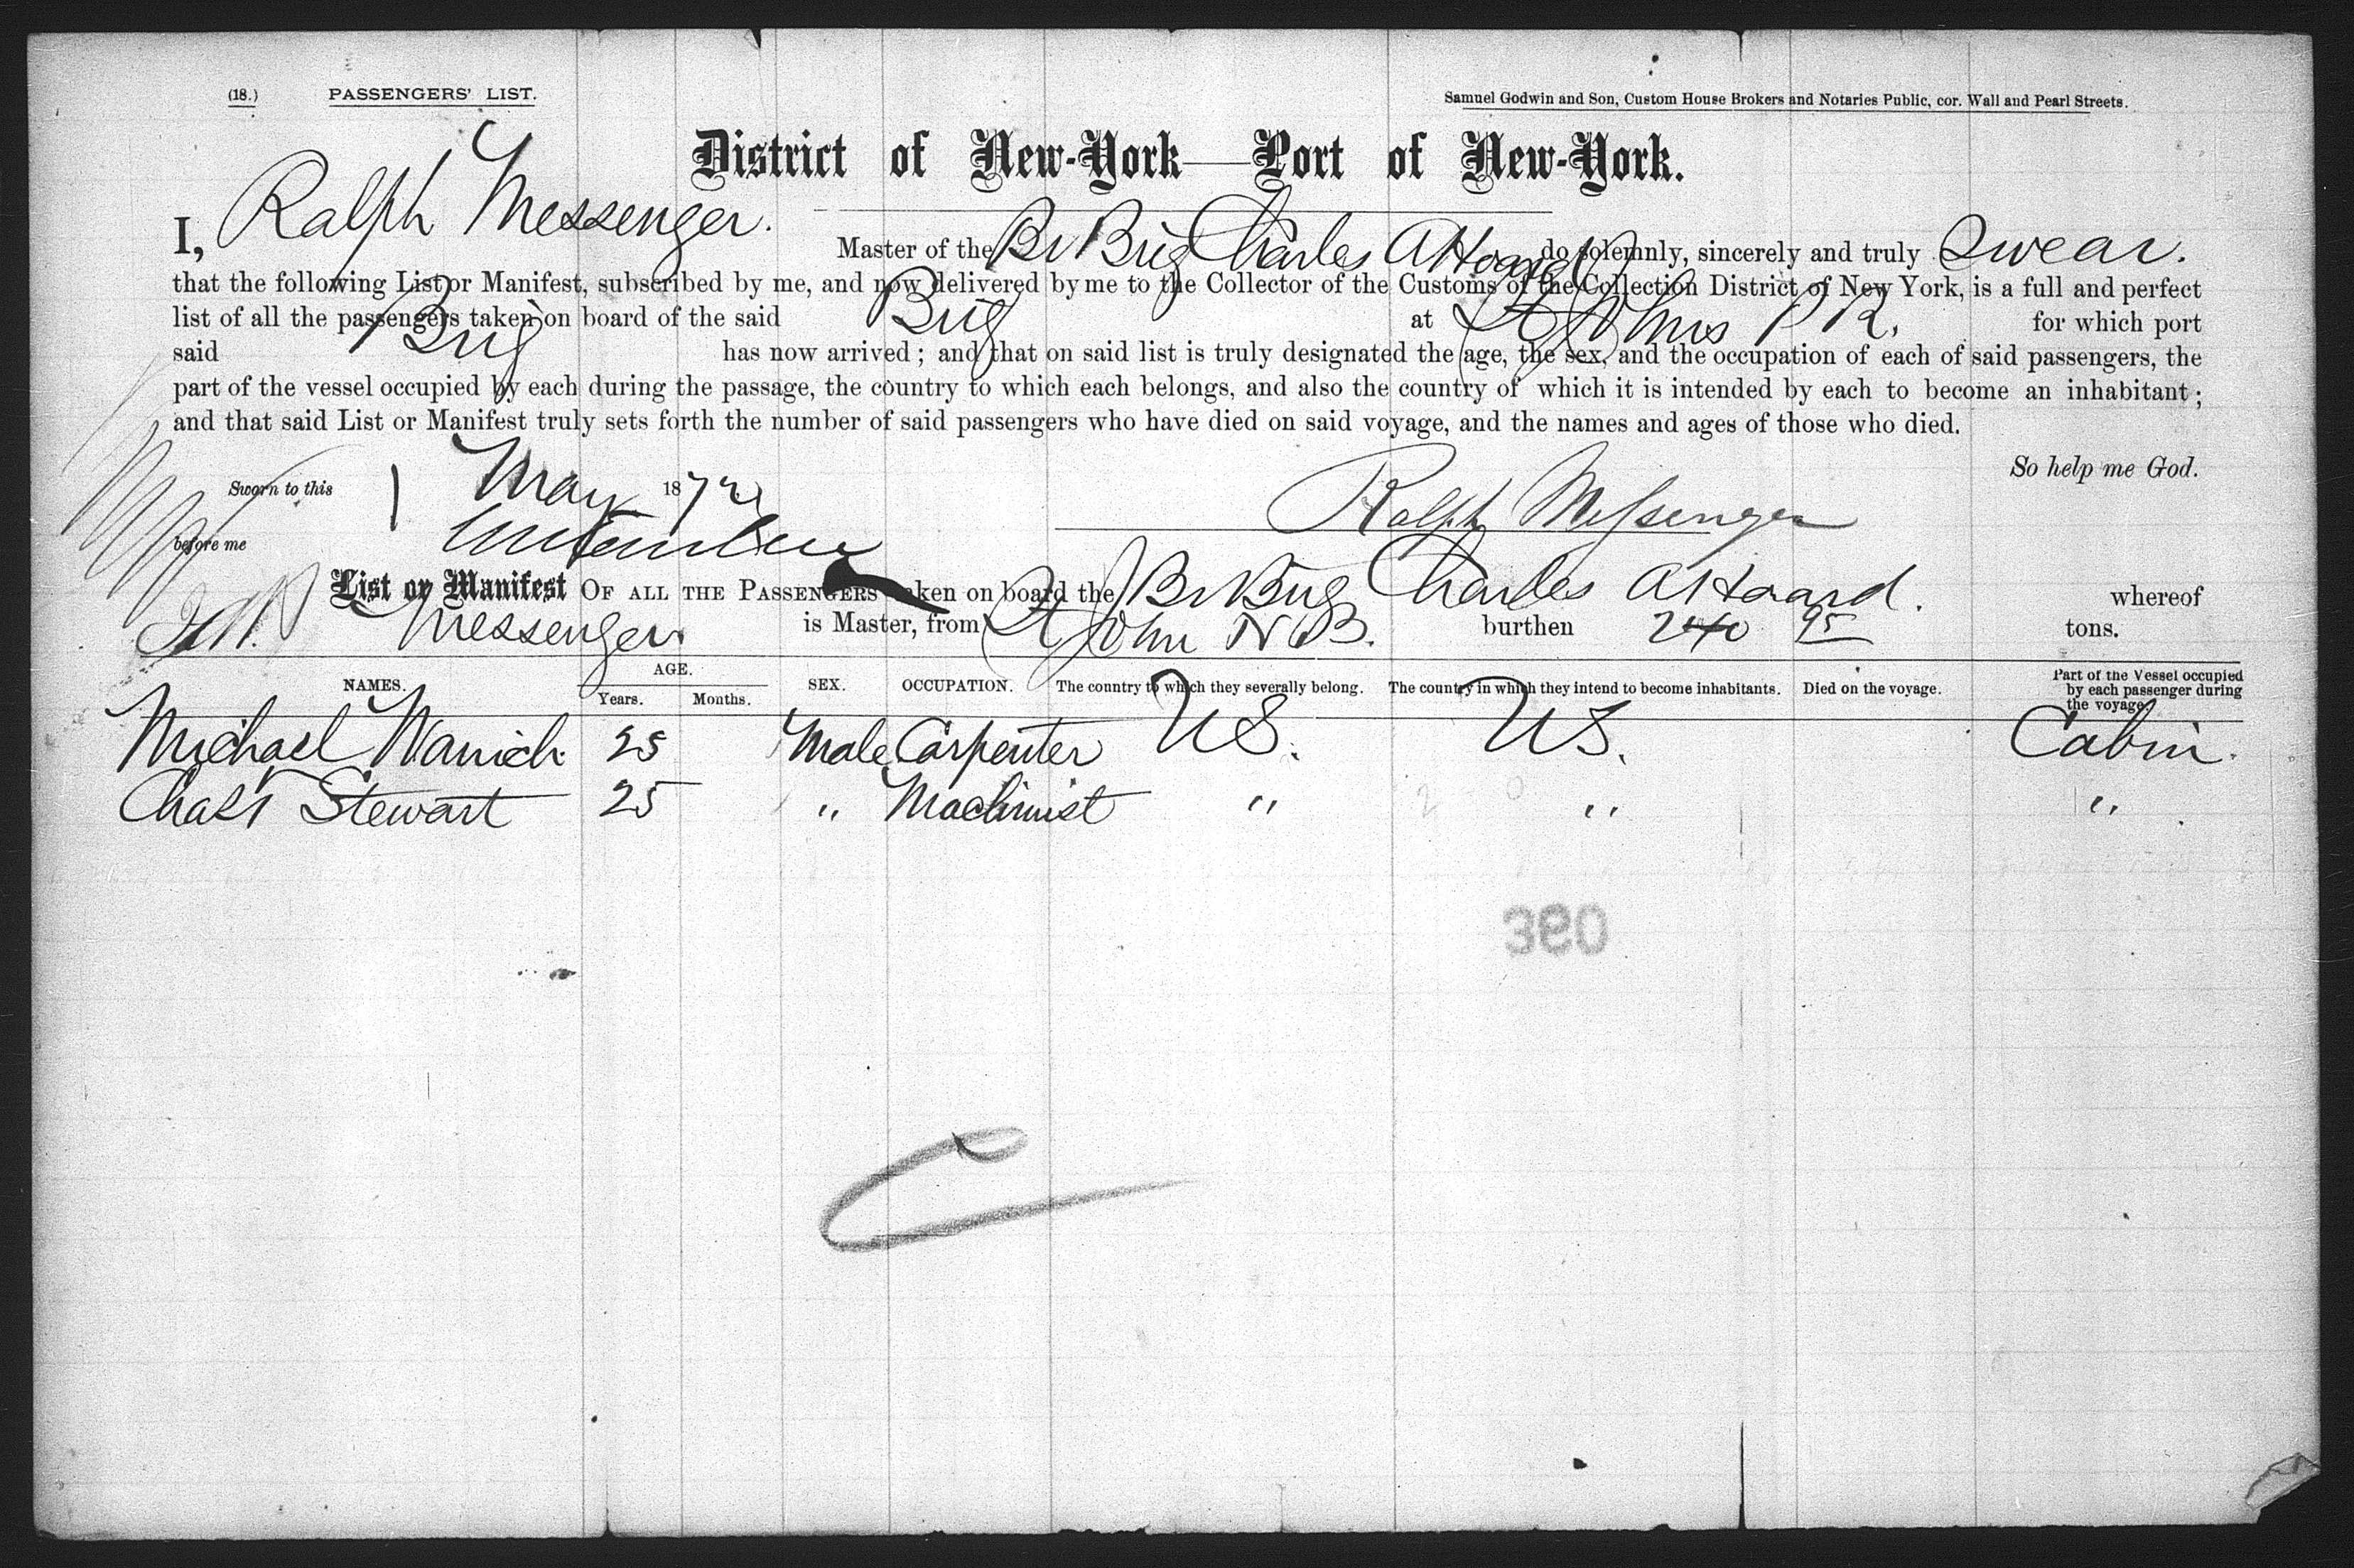 (18.) PASSENGERS' LIST.
Samuel Godwin and Son, Custom House Brokers and Notaries Public, cor. Wall and Pearl Streets.
District of New-York—Port of New-York.
I, Ralph Messenger. Master of the Br Brig Charles A Hoard do solemnly, sincerely and truly swear.
that the following List or Manifest, subscribed by me, and now delivered by me to the Collector of the Customs of the Collection District of New York, is a full and perfect
list of all the passengers taken on board of the said Brig at St Johns P R. for which port
said Brig has now arrived; and that on said list is truly designated the age, the sex, and the occupation of each of said passengers, the
part of the vessel occupied by each during the passage, the country to which each belongs, and also the country of which it is intended by each to become an inhabitant;
and that said List or Manifest truly sets forth the number of said passengers who have died on said voyage, and the names and ages of those who died.
So help me God.
Sworn to this 1 May 187
Ralph Messenger
before me
List or Manifest OF ALL THE PASSENGERS taken on board the Br Brig Charles A Hoard. whereof
Messenger is Master, from St John N B. burthen 240 95 tons.
NAMES. AGE. Years. Months. SEX. OCCUPATION. The country to which they severally belong. The country in which they intend to become inhabitants. Died on the voyage. Part of the Vessel occupied by each passenger during the voyage.
Michael 25 Male Carpenter US. US. Cabin.
Chas Stewart 25 " Machinist " " "
380